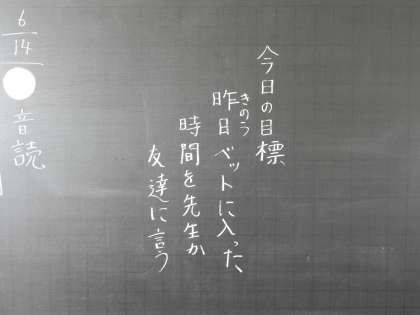 今日の目標
昨日ベットに入った、
きのう
時間を先生か
友達に言う
6/14
音読